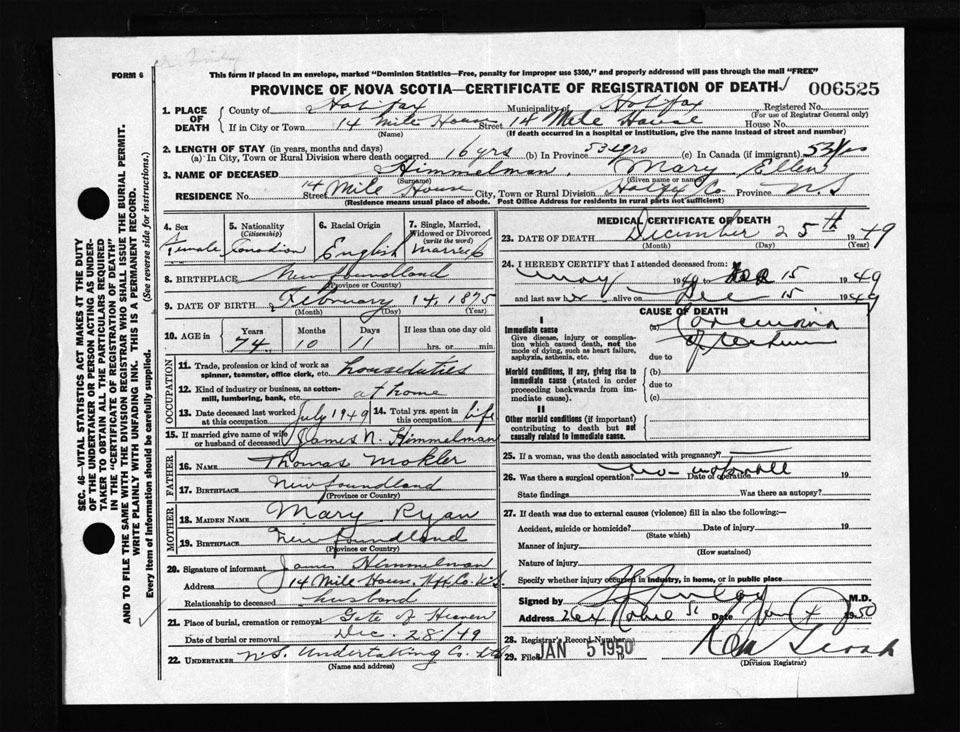 FORM 6
This form if placed in an envelope, marked "Dominion Statistics—Free, penalty for improper use $300," and properly addressed will pass through the mail "FREE"
PROVINCE OF NOVA SCOTIA—CERTIFICATE OF REGISTRATION OF DEATH 006525
1. PLACE OF DEATH
County of Halifax Municipality of Halifax Registered No.
(For use of Registrar General only)
If in City or Town 14 Mile House Street 14 Mile House House No.
(Name) (If death occurred in a hospital or institution, give the name instead of street and number)
2. LENGTH OF STAY (in years, months and days)
(a) In City, Town or Rural Division where death occurred 16 yrs (b) In Province 53 yrs (c) In Canada (if immigrant) 53 yrs
3. NAME OF DECEASED Himmelman, Mary Ellen
(Surname) (Given name or names)
RESIDENCE No. Street 14 Mile House City, Town or Rural Division Halifx Co. Province N.S
(Residence means usual place of abode. Post Office Address for residents in rural parts not sufficient)
4. Sex Female
5. Nationality (Citizenship) Canadian
6. Racial Origin English
7. Single, Married, Widowed or Divorced (write the word) Married
8. BIRTHPLACE Newfoundland
(Province or Country)
9. DATE OF BIRTH February 14, 1875
(Month) (Day) (Year)
10. AGE in Years Months Days If less than one day old
74 10 11 hrs. or min.
OCCUPATION
11. Trade, profession or kind of work as spinner, teamster, office clerk, etc. houseduties
12. Kind of industry or business, as cotton-mill, lumbering, bank, etc. at home
13. Date deceased last worked at this occupation July 1949
14. Total yrs. spent in this occupation Life
15. If married give name of wife or husband of deceased James N. Himmelman
FATHER
16. NAME Thomas Mokler
17. BIRTHPLACE Newfoundland
(Province or Country)
MOTHER
18. MAIDEN NAME Mary Ryan
19. BIRTHPLACE Newfoundland
(Province or Country)
20. Signature of informant James Himmelman
Address 14 Mile House, Hfx. Co. N.S.
Relationship to deceased husband
21. Place of burial, cremation or removal Gate of Heaven
Date of burial or removal Dec. 28/49
22. UNDERTAKER N.S. Undertaking Co. Ltd
(Name and address)
MEDICAL CERTIFICATE OF DEATH
23. DATE OF DEATH December 25th 1949
(Month) (Day) (Year)
24. I HEREBY CERTIFY that I attended deceased from:
May 1949 to Dec 15 1949
and last saw her alive on Dec 15 1949
CAUSE OF DEATH
I
Immediate cause
Give disease, injury or complication which caused death, not the mode of dying, such as heart failure, asphyxia, asthenia, etc.
(a) Carcinoma of rectum
due to
Morbid conditions, if any, giving rise to immediate cause (stated in order proceeding backwards from immediate cause).
(b)
due to
(c)
II
Other morbid conditions (if important) contributing to death but not causally related to immediate cause.
25. If a woman, was the death associated with pregnancy?
26. Was there a surgical operation? Date of operation 19
State findings Was there as autopsy?
27. If death was due to external causes (violence) fill in also the following:—
Accident, suicide or homicide? Date of injury 19
(State which)
Manner of injury
(How sustained)
Nature of injury
Specify whether injury occurred in industry, in home, or in public place
Signed by M.D.
Address Date Jan 1950
28. Registrar's Record Number
29. Filed JAN 5 1950 19
(Division Registrar)
SEC. 46—VITAL STATISTICS ACT MAKES IT THE DUTY
OF THE UNDERTAKER OR PERSON ACTING AS UNDER-
TAKER TO OBTAIN ALL THE PARTICULARS REQUIRED
IN THE "CERTIFICATE OF REGISTRATION OF DEATH"
AND TO FILE THE SAME WITH THE DIVISION REGISTRAR WHO SHALL ISSUE THE BURIAL PERMIT.
WRITE PLAINLY WITH UNFADING INK. THIS IS A PERMANENT RECORD.
Every item of Information should be carefully supplied. (See reverse side for instructions.)